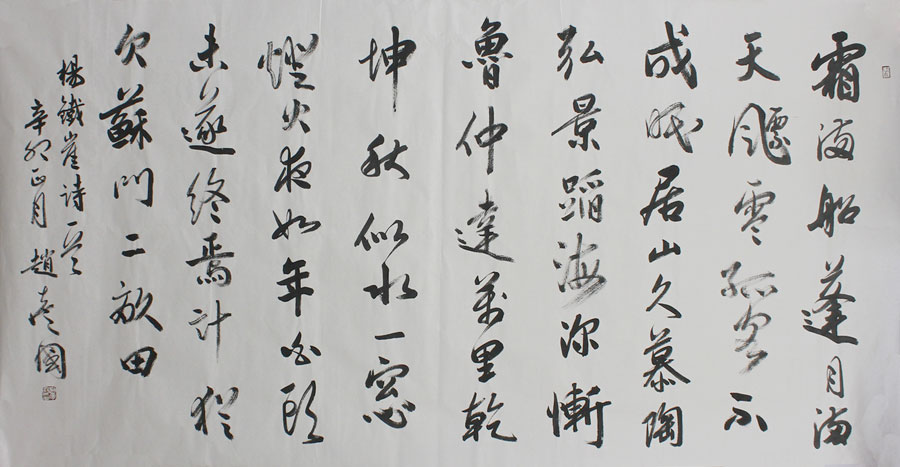 霜滿船蓬月滿
天飄零孤客不
成眠居山久慕陶
弘景蹈海深慚
魯仲達萬里乾
坤秋似水一窓
燈火夜如年白頭
未遂終焉計猶
欠蘇門二畝田
楊鐵崖詩一首
辛卯正月趙國